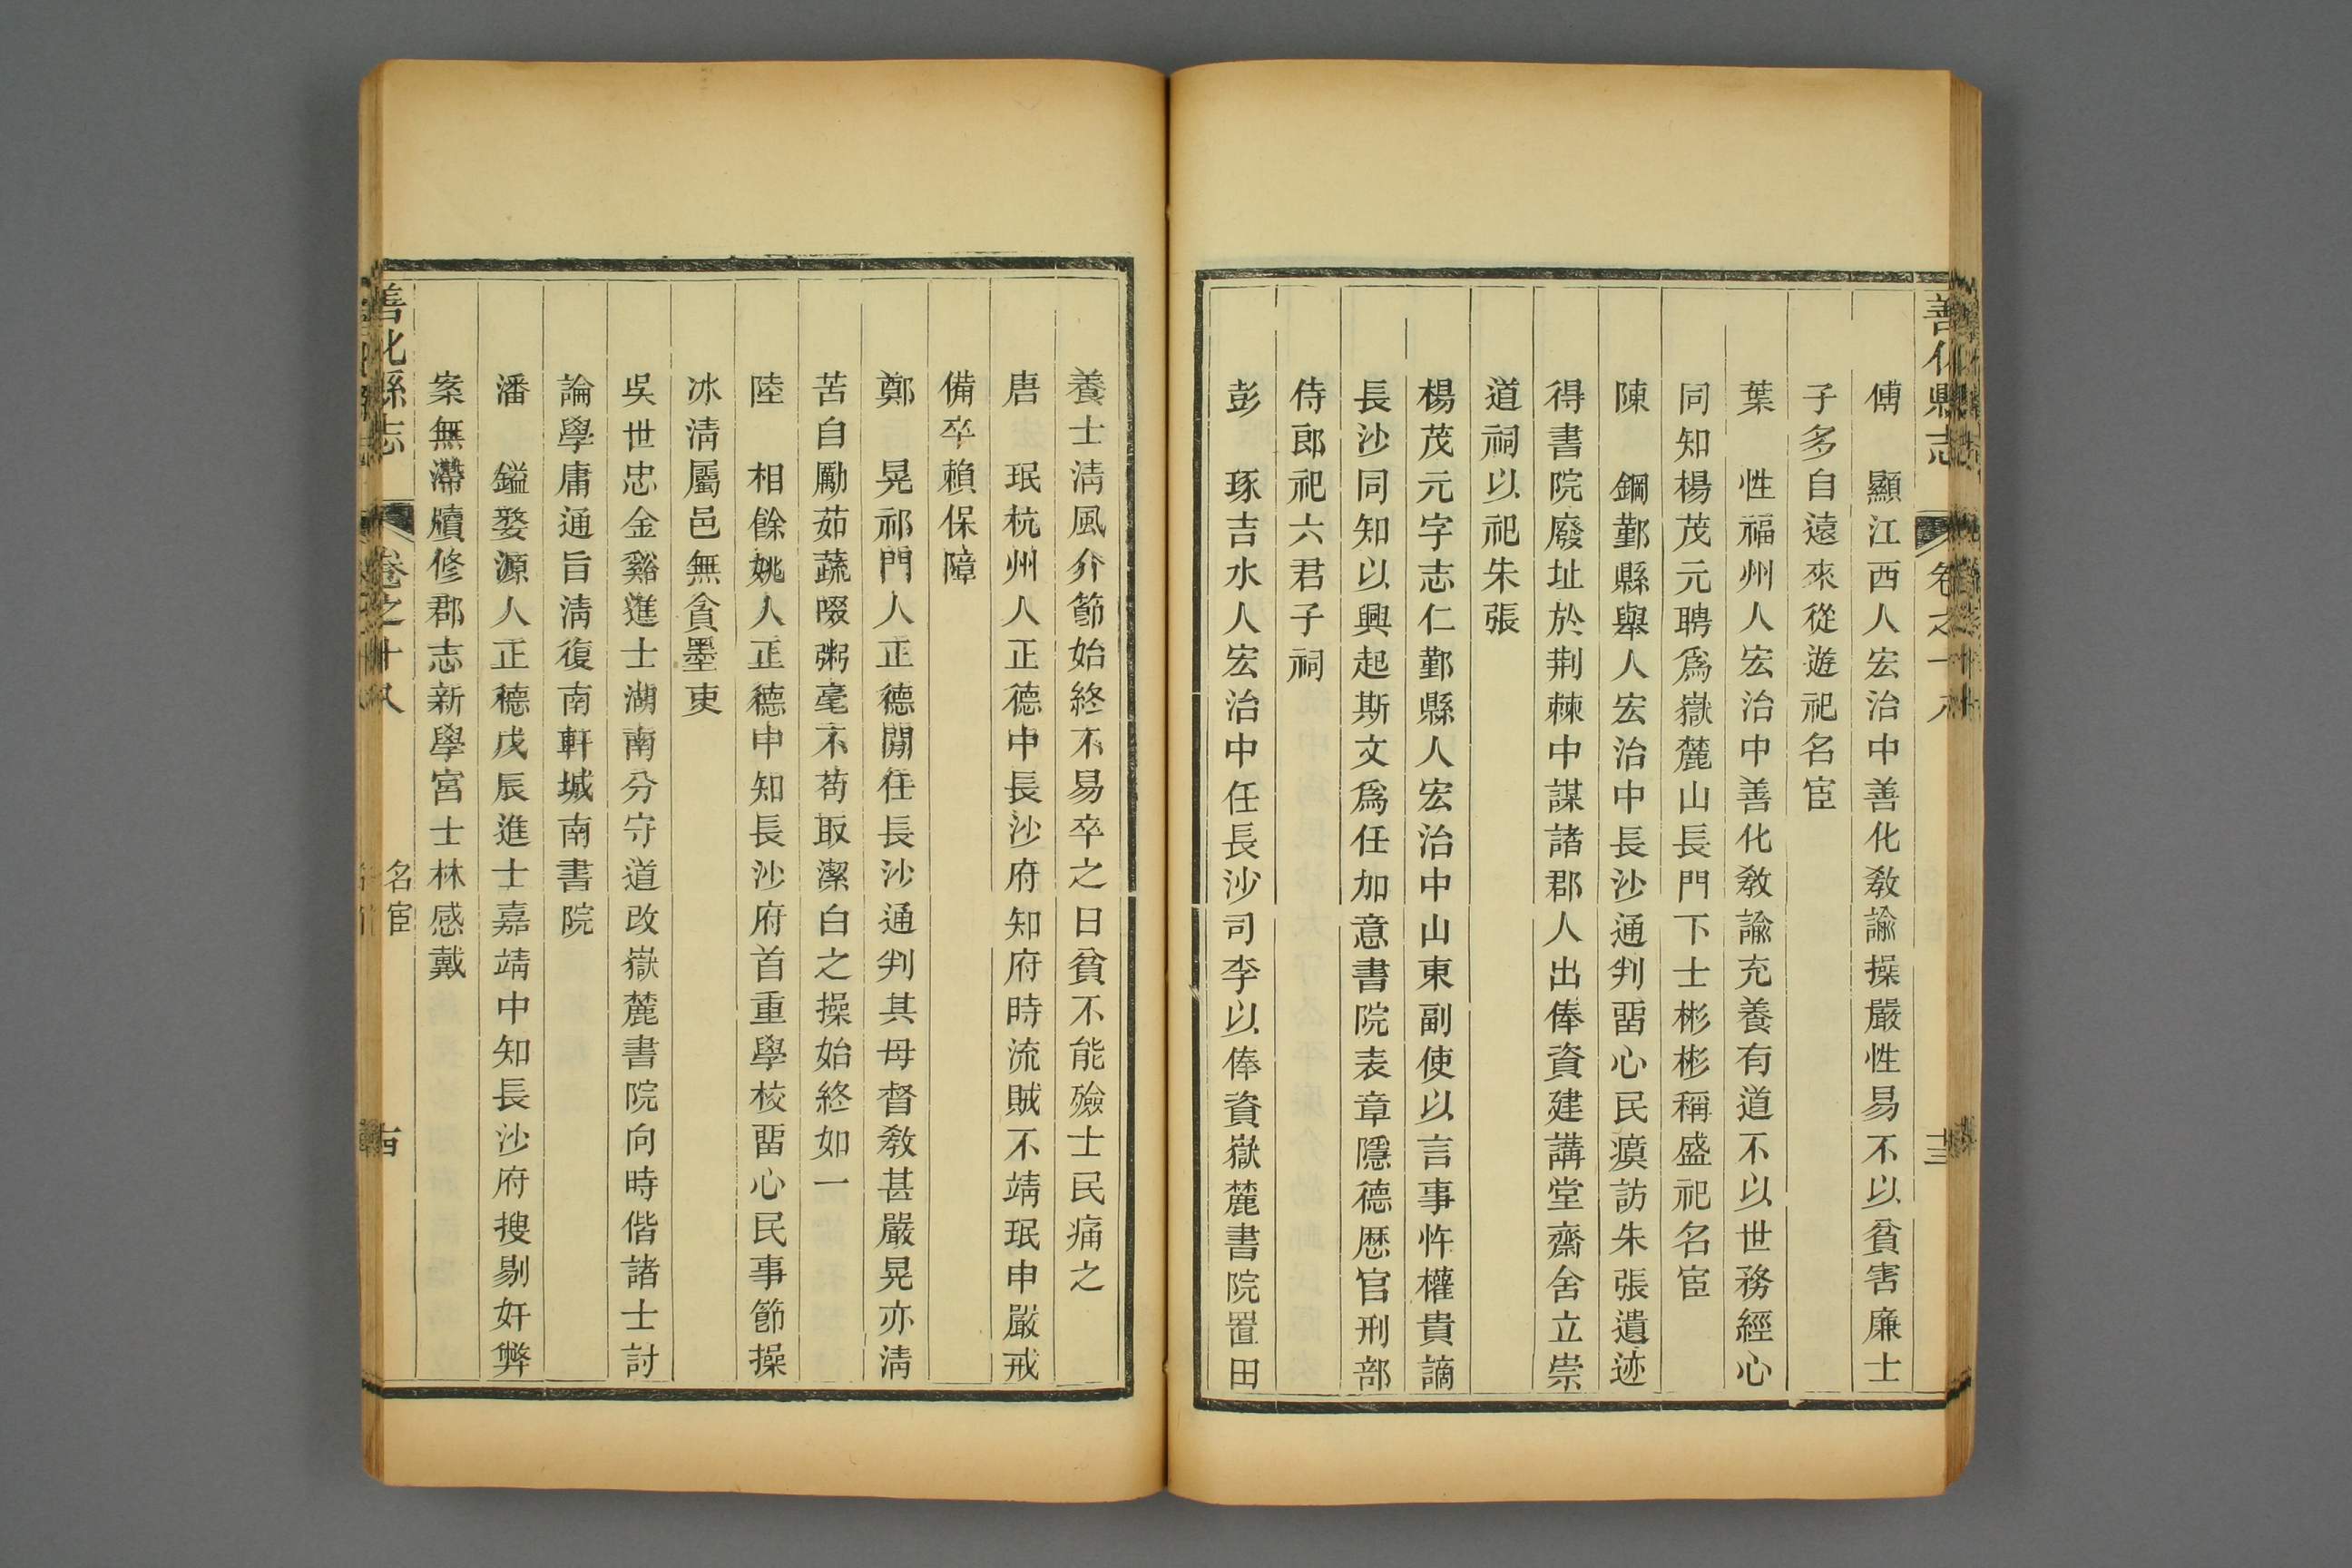 善化縣志 卷之十八 十三
傅 顯江西人宏治中善化敎諭操嚴性易不以貧害廉士
子多自遠來從遊祀名宦
葉 性福州人宏治中善化敎諭充養有道不以世務經心
同知楊茂元聘爲嶽麓山長門下士彬彬稱盛祀名宦
陳 鋼鄞縣舉人宏治中長沙通判畱心民瘼訪朱張遺迹
得書院廢址於荆棘中謀諸郡人出俸資建講堂齋舍立崇
道祠以祀朱張
楊茂元字志仁鄞縣人宏治中山東副使以言事忤權貴謫
長沙同知以興起斯文爲任加意書院表章隱德歷官刑部
侍郎祀六君子祠
彭 琢吉水人宏治中任長沙司李以俸資嶽麓書院置田
養士淸風介節始終不易卒之日貧不能殮士民痛之
唐 珉杭州人正德中長沙府知府時流賊不靖珉申嚴戒
備卒賴保障
鄭 晃祁門人正德閒任長沙通判其母督敎甚嚴晃亦淸
苦自勵茹蔬啜粥毫不苟取潔白之操始終如一
陸 相餘姚人正德中知長沙府首重學校畱心民事節操
冰淸屬邑無貪墨吏
吳世忠金谿進士湖南分守道改嶽麓書院向時偕諸士討
論學庸通旨淸復南軒城南書院
潘 鎰婺源人正德戊辰進士嘉靖中知長沙府搜剔奸弊
案無滯牘修郡志新學宮士林感戴
善化縣志 卷之十八 名宦 古